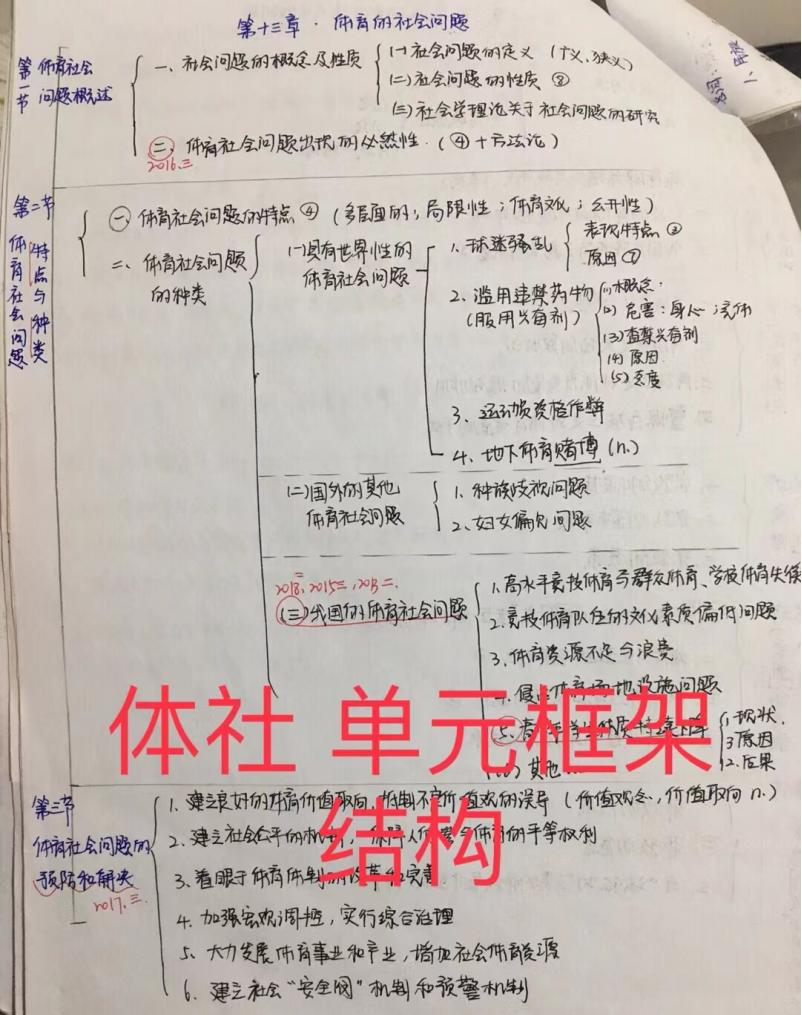 第十三章·体育的社会问题
第一节 体育社会问题概述
一、社会问题的概念及性质
(一)社会问题的定义(广义、狭义)
(二)社会问题的性质③
(三)社会学理论关于社会问题的研究
二、体育社会问题出现的必然性.(④+方法论)
2016.三
第二节 体育社会问题特点与种类
一、体育社会问题的特点④(多层面的;局限性;体育文化;公开性)
二、体育社会问题的种类
(一)具有世界性的体育社会问题
1、球迷骚乱
表现特点③
原因⑦
2、滥用违禁药物(服用兴奋剂)
(1)概念.
(2)危害:身心;流体
(3)查禁兴奋剂
(4)原因
(5)态度
3、运动员资格作弊
4、地下体育赌博(n.)
(二)国外的其他体育社会问题
1、种族歧视问题
2、妇女偏见问题
2018.二 2015二,2013二.
(三)我国的体育社会问题
1.高水平竞技体育与群众体育、学校体育失衡
2.竞技体育队伍的文化素质偏低问题
3、体育资源不足与浪费
4.侵占体育场地设施问题
5、青少年学生体质持续下降
1.现状.
3原因
2.后果
其他
体社 单元框架
结构
第三节
体育社会问题的
预防和解决
2017.三
1、建立良好的体育价值取向,抵制不良价值观的误导(价值观念,价值取向n.)
2、建立社会公平的机制,保障人们参与体育的平等权利
3、着眼于体育体制的改革和完善
4.加强宏观调控,实行综合治理
5、大力发展体育事业和产业,增加社会体育资源
6、建立社会“安全阀”机制和预警机制